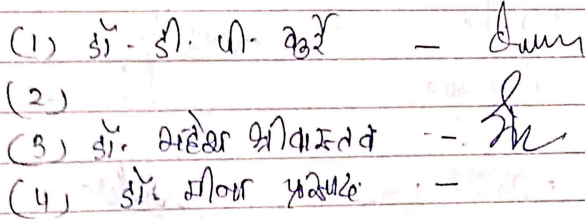 (1) डॉ. डी. पी. कुर्रे -
(2)
(3) डॉ. महेश श्रीवास्तव -
(4) डॉ. मीना प्रसाद -